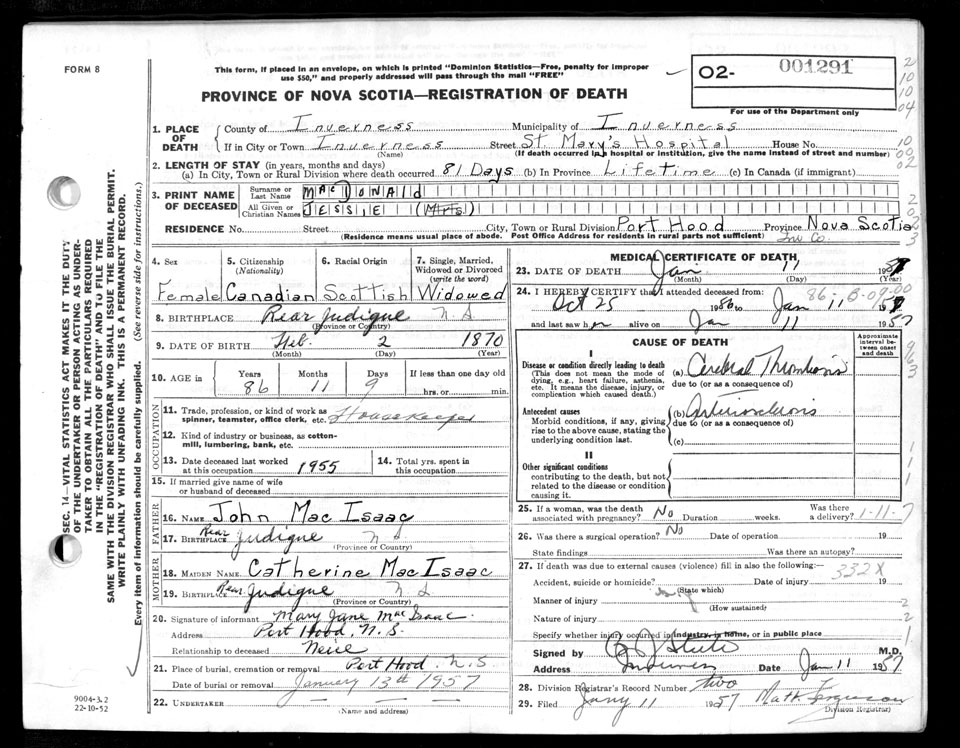 FORM 8
This form, if placed in an envelope, on which is printed "Dominion Statistics—Free, penalty for improper
use $50," and properly addressed will pass through the mail "FREE"
PROVINCE OF NOVA SCOTIA—REGISTRATION OF DEATH
O2- 001291
For use of the Department only
2
10
10
04
10
00
02
2
02
3
1. PLACE OF DEATH
County of Inverness Municipality of Inverness
If in City or Town Inverness Street St Mary's Hospital House No.
(Name) (If death occurred in a hospital or institution, give the name instead of street and number)
2. LENGTH OF STAY (in years, months and days)
(a) In City, Town or Rural Division where death occurred 81 Days (b) In Province Lifetime (c) In Canada (if immigrant)
3. PRINT NAME OF DECEASED
Surname or Last Name MacDonald
All Given or Christian Names JESSIE (Mrs)
RESIDENCE No. Street City, Town or Rural Division Port Hood Province Nova Scotia
(Residence means usual place of abode. Post Office Address for residents in rural parts not sufficient) Inv Co.
4. Sex 5. Citizenship (Nationality) 6. Racial Origin 7. Single, Married, Widowed or Divorced (write the word)
Female Canadian Scottish Widowed
8. BIRTHPLACE Rear Judique N S
(Province or Country)
9. DATE OF BIRTH Feb. 2 1870
(Month) (Day) (Year)
10. AGE in Years Months Days If less than one day old
86 11 9 hrs. or min.
OCCUPATION
11. Trade, profession, or kind of work as spinner, teamster, office clerk, etc. Housekeeper
12. Kind of industry or business, as cotton-mill, lumbering, bank, etc.
13. Date deceased last worked at this occupation 1955
14. Total yrs. spent in this occupation
15. If married give name of wife or husband of deceased
FATHER
16. NAME John Mac Isaac
17. BIRTHPLACE Rear Judique N S
(Province or Country)
MOTHER
18. MAIDEN NAME Catherine Mac Isaac
19. BIRTHPLACE Rear Judique N S
(Province or Country)
20. Signature of informant Mary Jane Mac Isaac
Address Port Hood, N.S.
Relationship to deceased Neice
21. Place of burial, cremation or removal Port Hood. N.S
Date of burial or removal January 13th 1957
22. UNDERTAKER
(Name and address)
MEDICAL CERTIFICATE OF DEATH
23. DATE OF DEATH Jan 11 1957
(Month) (Day) (Year)
24. I HEREBY CERTIFY that I attended deceased from: 86-B-09-00
Oct 25 1956 to Jan 11 1957
and last saw her alive on Jan 11 1957
CAUSE OF DEATH
Approximate interval between onset and death
I
Disease or condition directly leading to death
(This does not mean the mode of dying, e.g., heart failure, asthenia, etc. It means the disease, injury, or complication which caused death.)
(a) Cerebral Thrombosis
due to (or as a consequence of)
Antecedent causes
Morbid conditions, if any, giving rise to the above cause, stating the underlying condition last.
(b) Arteriosclerosis
due to (or as a consequence of)
(c)
II
Other significant conditions
contributing to the death, but not related to the disease or condition causing it.
963
1
1
1
25. If a woman, was the death associated with pregnancy? No Duration weeks. Was there a delivery? 1-11-7
26. Was there a surgical operation? No Date of operation 19
State findings Was there an autopsy?
27. If death was due to external causes (violence) fill in also the following:—
332X
Accident, suicide or homicide? Date of injury 19
(State which)
Manner of injury 2
(How sustained)
Nature of injury 2
Specify whether injury occurred in industry, in home, or in public place 1
Signed by M.D.
Address Inverness Date Jan 11 1957
28. Division Registrar's Record Number two
29. Filed Jany 11 1957 Matt Ferguson
(Division Registrar)
SEC. 14—VITAL STATISTICS ACT MAKES IT THE DUTY
OF THE UNDERTAKER OR PERSON ACTING AS UNDER-
TAKER TO OBTAIN ALL THE PARTICULARS REQUIRED
IN THE "REGISTRATION OF DEATH" AND TO FILE THE
SAME WITH THE DIVISION REGISTRAR WHO SHALL ISSUE THE BURIAL PERMIT.
WRITE PLAINLY WITH UNFADING INK. THIS IS A PERMANENT RECORD.
Every item of information should be carefully supplied. (See reverse side for instructions.)
9004-3.2
22-10-52